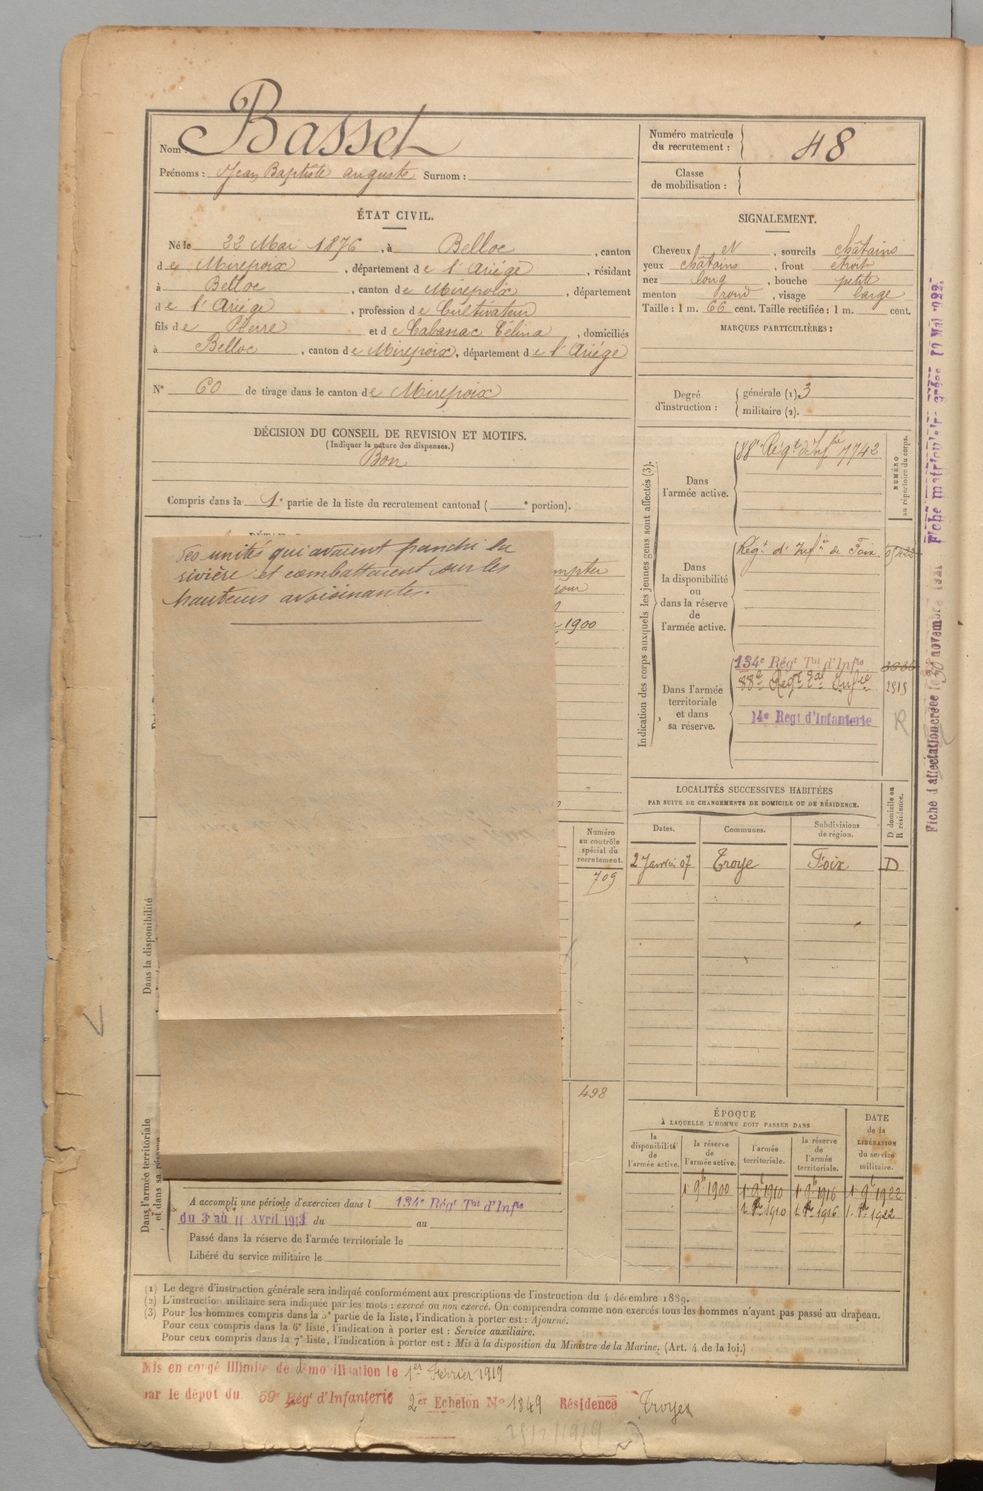 Nom : Basset
Prénoms : Jean Baptiste Auguste Surnom :
Numéro matricule du recrutement : 48
Classe de mobilisation :
ÉTAT CIVIL.
Né le 22 Mai 1876, à Belloc, canton
de Mirepoix, département de l'Ariége, résidant
à Belloc, canton de Mirepoix, département
de l'Ariége, profession de Cultivateur
fils de Pierre et de Cabanac Célina, domiciliés
à Belloc, canton de Mirepoix, département de l'Ariége
N° 60 de tirage dans le canton de Mirepoix
SIGNALEMENT.
Cheveux N, sourcils châtains
yeux châtains, front étroit
nez long, bouche petite
menton rond, visage large
Taille : 1 m. 66 cent. Taille rectifiée : 1 m. cent.
MARQUES PARTICULIÈRES :
Degré d'instruction :
générale (1). 3
militaire (2).
DÉCISION DU CONSEIL DE REVISION ET MOTIFS.
(Indiquer la nature des dispenses.)
Bon
Compris dans la 1e partie de la liste du recrutement cantonal ( e portion).
des unités qui avaient franchi la
rivière et combattaient sur les
hauteurs avoisinantes.
1900
Indication des corps auxquels les jeunes gens sont affectés (3).
NUMÉRO au répertoire du corps.
Dans l'armée active.
88e Régt d'Infie 7742
Dans la disponibilité ou dans la réserve de l'armée active.
Régt d'Infie de Foix
Dans l'armée territoriale et dans sa réserve.
134e Régt Tal d'Infie
88e Régt Tal Infie 2515
14e Regt d'Infanterie R
LOCALITÉS SUCCESSIVES HABITÉES
PAR SUITE DE CHANGEMENTS DE DOMICILE OU DE RÉSIDENCE.
Dates. Communes. Subdivisions de région. D domicile ou R résidence.
2 Janvier 07 Troye Foix D
Numéro au contrôle spécial du recrutement.
709
498
Dans la disponibilité
Dans l'armée territoriale et dans sa réserve
ÉPOQUE
À LAQUELLE L'HOMME DOIT PASSER DANS
la disponibilité de l'armée active.
la réserve de l'armée active.
l'armée territoriale.
la réserve de l'armée territoriale.
DATE de la LIBÉRATION du service militaire.
1 9bre 1900 1 9bre 1910 1 9bre 1916 1 9bre 1922
1 8bre 1910 1 8bre 1916 1 8bre 1922
A accompli une période d'exercices dans l 134e Régt Tal d'Infie
du 3 au 11 Avril 1913 du au
Passé dans la réserve de l'armée territoriale le
Libéré du service militaire le
(1) Le degré d'instruction générale sera indiqué conformément aux prescriptions de l'instruction du 4 décembre 1889.
(2) L'instruction militaire sera indiquée par les mots : exercé ou non exercé. On comprendra comme non exercés tous les hommes n'ayant pas passé au drapeau.
(3) Pour les hommes compris dans la 5e partie de la liste, l'indication à porter est : Ajourné.
Pour ceux compris dans la 6e liste, l'indication à porter est : Service auxiliaire.
Pour ceux compris dans la 7e liste, l'indication à porter est : Mis à la disposition du Ministre de la Marine. (Art. 4 de la loi.)
Mis en congé illimité de démobilisation le 1er Février 1919
par le dépot du 59e Régt d'Infanterie 2er Echelon N° 1849 Résidence Troyes